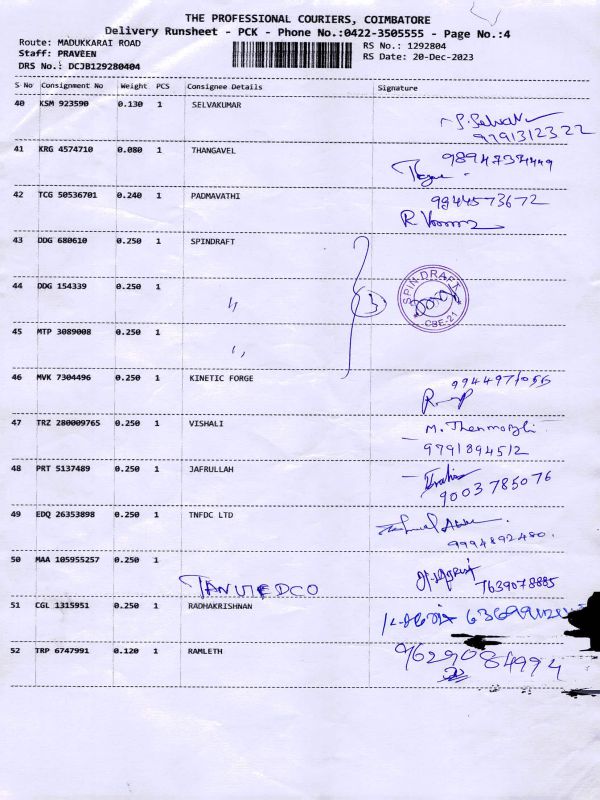 THE PROFESSIONAL COURIERS, COIMBATORE
Delivery Runsheet - PCK - Phone No.:0422-3505555 - Page No.:4
Route: MADUKKARAI ROAD
RS No.: 1292804
Staff: PRAVEEN
RS Date: 20-Dec-2023
DRS No.: DCJB129280404
S No Consignment No Weight PCS Consignee Details Signature
40 KSM 923590 0.130 1 SELVAKUMAR
9791312322
41 KRG 4574710 0.080 1 THANGAVEL
42 TCG 50536701 0.240 1 PADMAVATHI
9944573672
43 DDG 680610 0.250 1 SPINDRAFT
44 DDG 154339 0.250 1 〃
3
SPIN DRAFT
CBE-21
45 MTP 3089008 0.250 1 〃
46 MVK 7304496 0.250 1 KINETIC FORGE
9944971056
47 TRZ 280009765 0.250 1 VISHALI
9791894512
48 PRT 5137489 0.250 1 JAFRULLAH
9003785076
49 EDQ 26353898 0.250 1 TNFDC LTD
9994892480.
50 MAA 105955257 0.250 1
TANUTEDCO
7639078885
51 CGL 1315951 0.250 1 RADHAKRISHNAN
52 TRP 6747991 0.120 1 RAMLETH
9629084994